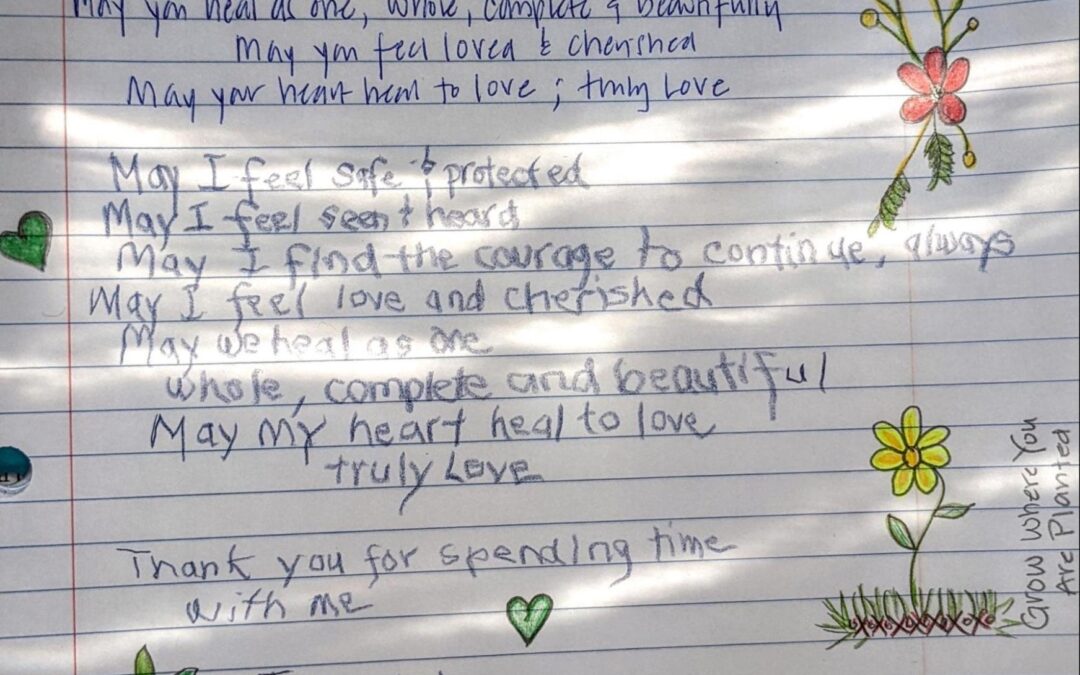 May you heal as one, whole, complete & beautifully
May you feel loved & cherished
May your heart heal to love ; truly Love
May I feel safe & protected
May I feel seen & heard
May I find the courage to continue, always
May I feel love and cherished
May we heal as one
whole, complete and beautiful
May my heart heal to love
truly Love
Thank you for spending time
with me
Grow Where You
Are Planted